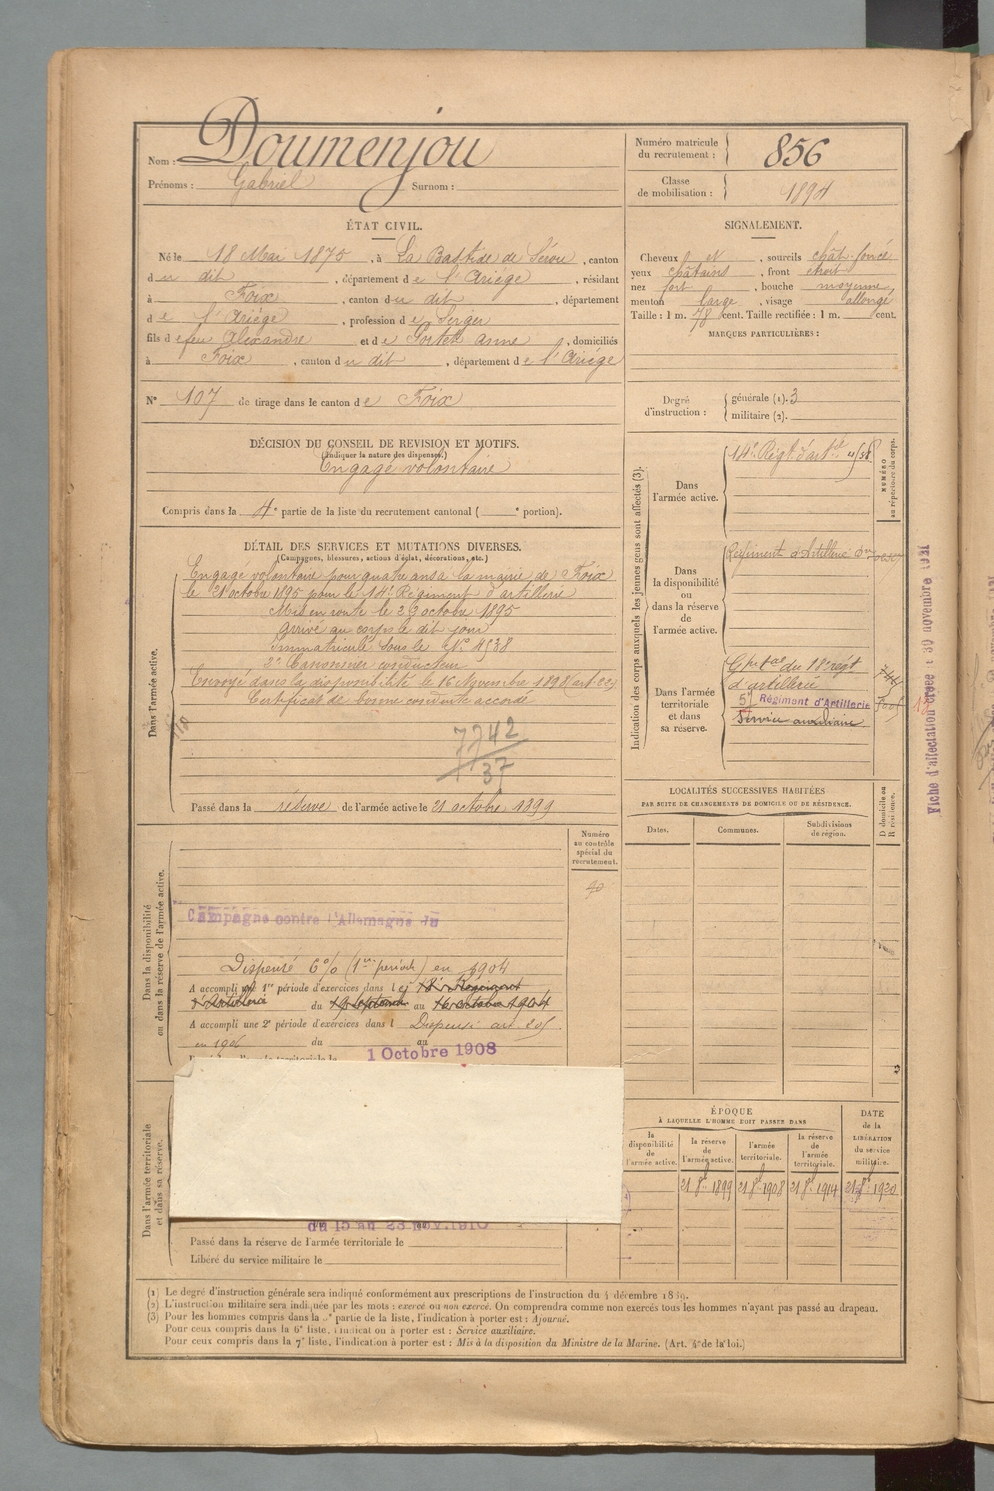 Nom : Doumenjou
Prénoms : Gabriel Surnom :
Numéro matricule
du recrutement : 856
Classe
de mobilisation : 1894
ÉTAT CIVIL.
Né le 18 Mai 1875, à La Bastide de Sérou, canton
du dit, département de l'Ariége, résidant
à Foix, canton du dit, département
de l'Ariége, profession de Berger
fils de feu Alexandre et de Portet anne, domiciliés
à Foix, canton du dit, département de l'Ariége
N° 107 de tirage dans le canton de Foix
SIGNALEMENT.
Cheveux N, sourcils chât-foncé
yeux châtains, front étroit
nez fort, bouche moyenne,
menton large, visage allongé
Taille : 1 m. 78 cent. Taille rectifiée : 1 m. cent.
MARQUES PARTICULIÈRES :
Degré
d'instruction :
générale (1). 3
militaire (2).
DÉCISION DU CONSEIL DE REVISION ET MOTIFS.
(Indiquer la nature des dispenses.)
Engagé volontaire
Compris dans la 4e partie de la liste du recrutement cantonal ( e portion).
DÉTAIL DES SERVICES ET MUTATIONS DIVERSES.
(Campagnes, blessures, actions d'éclat, décorations, etc.)
Dans l'armée active.
Engagé volontaire pour quatre ans à la mairie de Foix
le 21 octobre 1895 pour le 14e Régiment d'artillerie
Mis en route le 23 octobre 1895
arrivé au corps le dit jour
Immatriculé sous le N° 4538
2e Canonnier conducteur
Envoyé dans la disponibilité le 16 Novembre 1898 (art. 22)
Certificat de bonne conduite accordé
7742
37
Passé dans la réserve de l'armée active le 21 octobre 1899
Indication des corps auxquels les jeunes gens sont affectés (3).
NUMÉRO
au répertoire du corps.
Dans
l'armée active.
14e Régt d'artie
Dans
la disponibilité
ou
dans la réserve
de
l'armée active.
Régiment d'Artillerie
Dans l'armée
territoriale
et dans
sa réserve.
Gpe tal du 18e régt
d'artillerie
57 Régiment d'Artillerie
Service auxiliaire
Fiche d'affectation créée le 30 novembre 1921
LOCALITÉS SUCCESSIVES HABITÉES
PAR SUITE DE CHANGEMENTS DE DOMICILE OU DE RÉSIDENCE.
Dates. Communes. Subdivisions
de région.
D domicile ou
R résidence.
Numéro
au contrôle
spécial du
recrutement.
Dans la disponibilité
ou dans la réserve de l'armée active.
Campagne contre l'Allemagne du
Dispensé 6% (1re période) en 1904
A accompli une 1re période d'exercices dans le 18e Régiment
d'Artillerie du 19 septembre au 16 octobre 1904
A accompli une 2e période d'exercices dans l Dispensé art.
en 1906 du au
1 Octobre 1908
Dans l'armée territoriale
et dans sa réserve.
du 15 au 23 NOV. 1910
Passé dans la réserve de l'armée territoriale le
Libéré du service militaire le
ÉPOQUE
À LAQUELLE L'HOMME DOIT PASSER DANS
la
disponibilité
de
l'armée active.
la réserve
de
l'armée active.
l'armée
territoriale.
la réserve
de
l'armée
territoriale.
DATE
de la
LIBÉRATION
du service
militaire.
21 8bre 1899 21 8bre 1908 21 8bre 1914 21 8bre 1920
(1) Le degré d'instruction générale sera indiqué conformément aux prescriptions de l'instruction du 4 décembre 1889.
(2) L'instruction militaire sera indiquée par les mots : exercé ou non exercé. On comprendra comme non exercés tous les hommes n'ayant pas passé au drapeau.
(3) Pour les hommes compris dans la 5e partie de la liste, l'indication à porter est : Ajourné.
Pour ceux compris dans la 6e liste, l'indication à porter est : Service auxiliaire.
Pour ceux compris dans la 7e liste, l'indication à porter est : Mis à la disposition du Ministre de la Marine. (Art. 4 de la loi.)